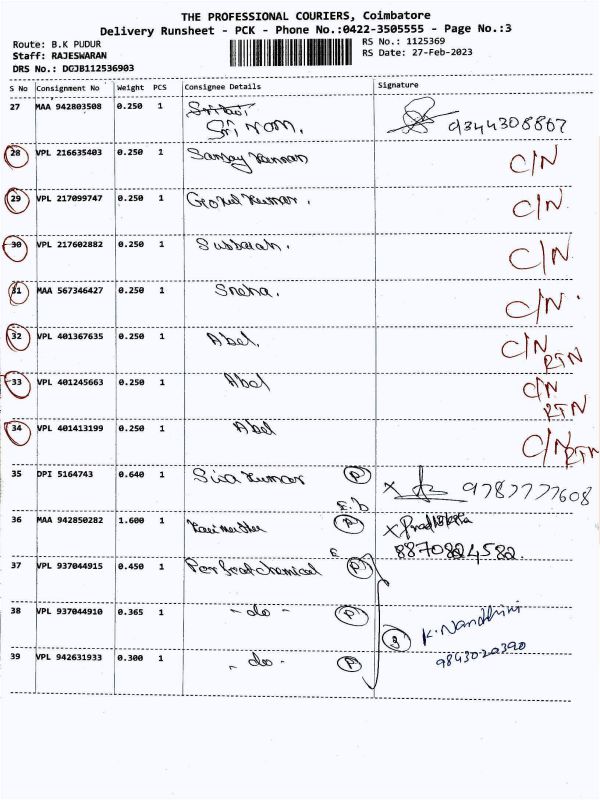 THE PROFESSIONAL COURIERS, Coimbatore
Delivery Runsheet - PCK - Phone No.:0422-3505555 - Page No.:3
Route: B.K PUDUR
RS No.: 1125369
Staff: RAJESWARAN
RS Date: 27-Feb-2023
DRS No.: DGJB112536903
S No Consignment No Weight PCS Consignee Details Signature
27 MAA 942803508 0.250 1 Sri ram. 9344308867
28 VPL 216635403 0.250 1 Sanjay Kannan C/N
29 VPL 217099747 0.250 1 Gokul Kumar. C/N
30 VPL 217602882 0.250 1 Subbaiah. C/N
31 MAA 567346427 0.250 1 Sneha. C/N.
32 VPL 401367635 0.250 1 Abel. C/N
RTN
33 VPL 401245663 0.250 1 Abel C/N
RTN
34 VPL 401413199 0.250 1 Abel C/N RTN
35 DPI 5164743 0.640 1 Siva Kumar P X 9787777608
36 MAA 942850282 1.600 1 P X
8870824582.
37 VPL 937044915 0.450 1 Perfect chemical P
38 VPL 937044910 0.365 1 - do - P
3 K. Nandhini
39 VPL 942631933 0.300 1 - do - P
9843020390